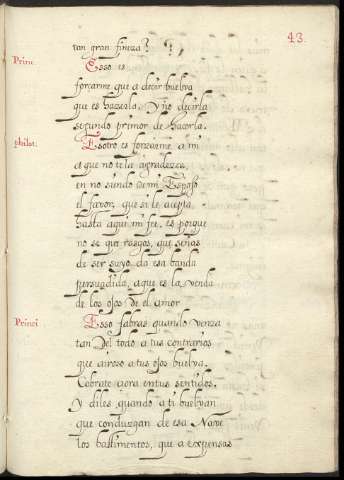 43.
tan gran fineza?
Prin.
Esso es
forçarme que a decir buelva
que es hazerla, y no decirla
segundo primor de hacerla.
philot.
Essotro es forzarme a mi
a que no te la agradezca,
en no siendo de mi Esposo
el favor, que si le acepta,
hasta aqui mi fee, es porque
no se que rasgos, que señas
de ser suyo, da esa banda
persuadida, a que es la venda
de los ojos de el amor
Princi
Esso sabras quando venza
tan del todo a tus contrarios
que airoso a tus ojos buelva.
Cobrate aora en tus sentidos,
Y diles, quando a ti buelvan
que conduzgan de esa Nave
los bastimentos, que a expensas